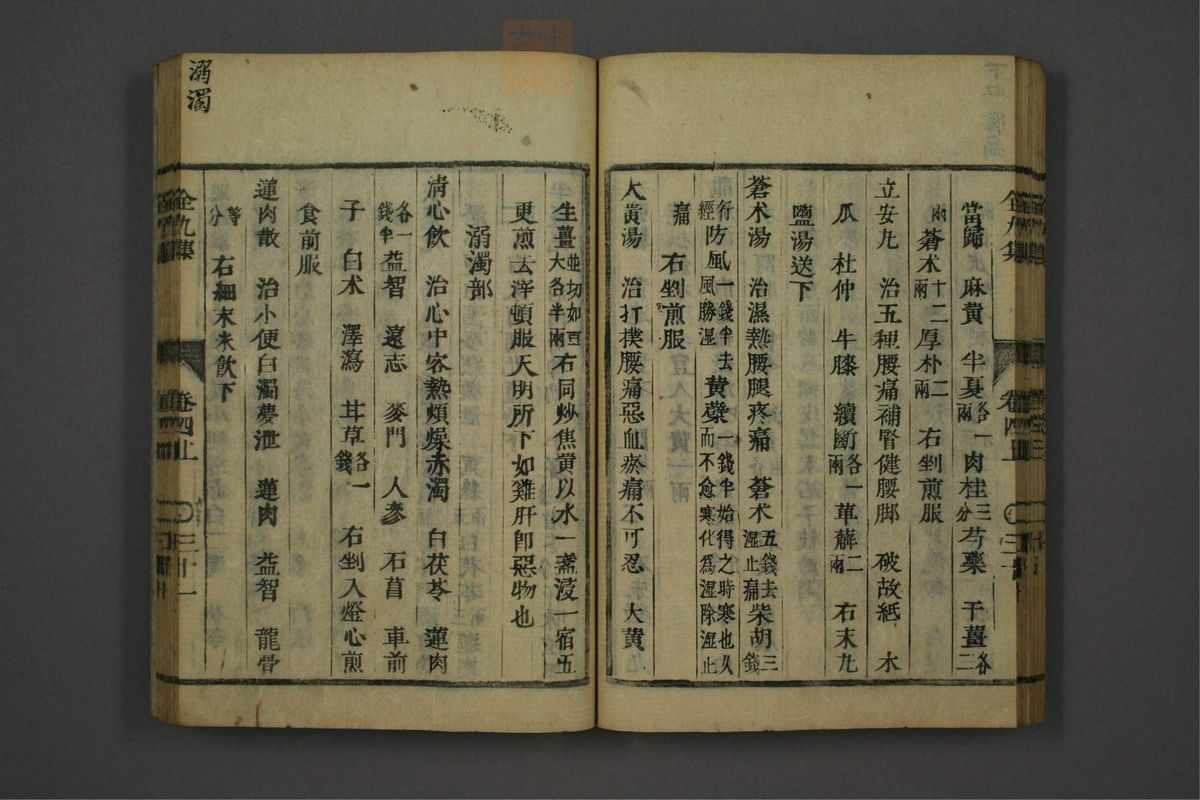 當歸 麻黃 半夏各一兩 肉桂三分 芍藥 干薑各二
兩 蒼术十二兩 厚朴二兩 右剉煎服
立安丸 治五種腰痛補腎健腰脚 破故紙 木
瓜 杜仲 牛膝 續斷各一兩 萆薢二兩 右末丸
鹽湯送下
蒼术湯 治濕熱腰腿疼痛 蒼术五錢去濕止痛 柴胡三錢
行經 防風一錢半去風勝湿 黃蘗一錢半始得之時寒也久而不愈寒化爲湿除湿止
痛 右剉煎服
大黃湯 治打撲腰痛惡血瘀痛不可忍 大黃
生薑並切如豆大各半兩 右同炒焦黃以水一盞浸一宿五
更煎去滓頓服天明所下如雞肝卽惡物也
溺濁部
淸心飮 治心中客熱煩燥赤濁 白茯苓 蓮肉
各一錢半 益智 遠志 麥門 人參 石菖 車前
子 白朮 澤瀉 甘草各一錢 右剉入燈心煎
食前服
蓮肉散 治小便白濁夢泄 蓮肉 益智 龍骨
等分 右細末米飮下
溺濁
全九集
卷四上
三十一
全九集
卷四上